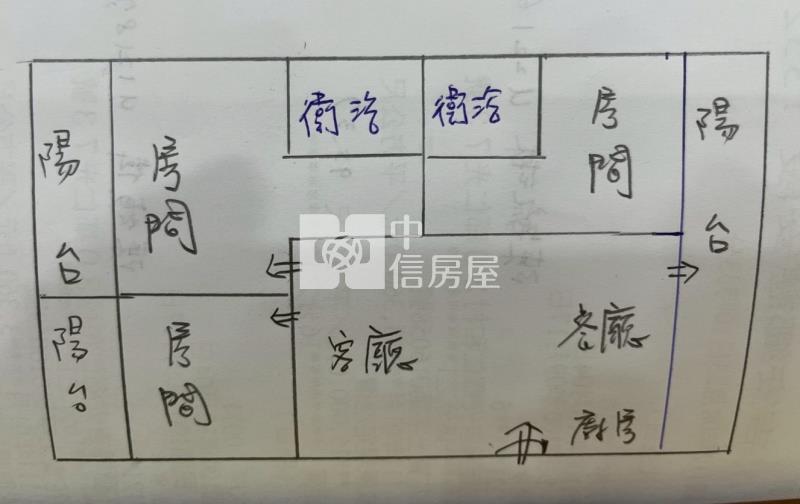 衛浴
衛浴
房間
陽台
陽台
房間
中信房屋
陽台
房間
客廳
客廳
廚房